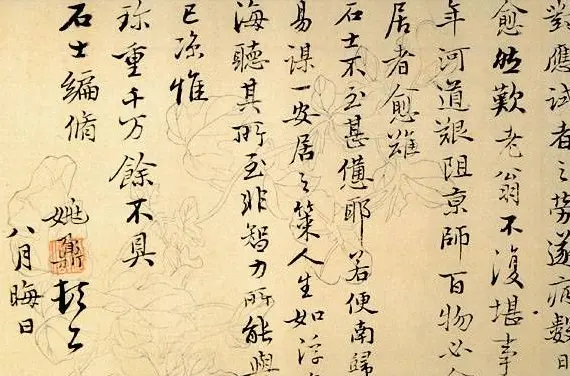 對應試者之勞遂病數日
愈然歎老翁不復堪事
年河道艱阻京師百物必
居者愈難
石士不至甚憊耶若便南歸
易謀一安居之策人生如浮
海聽其所至非智力所能與
已涼惟
珍重千万餘不具
石士編脩
姚鼐頓首
八月晦日